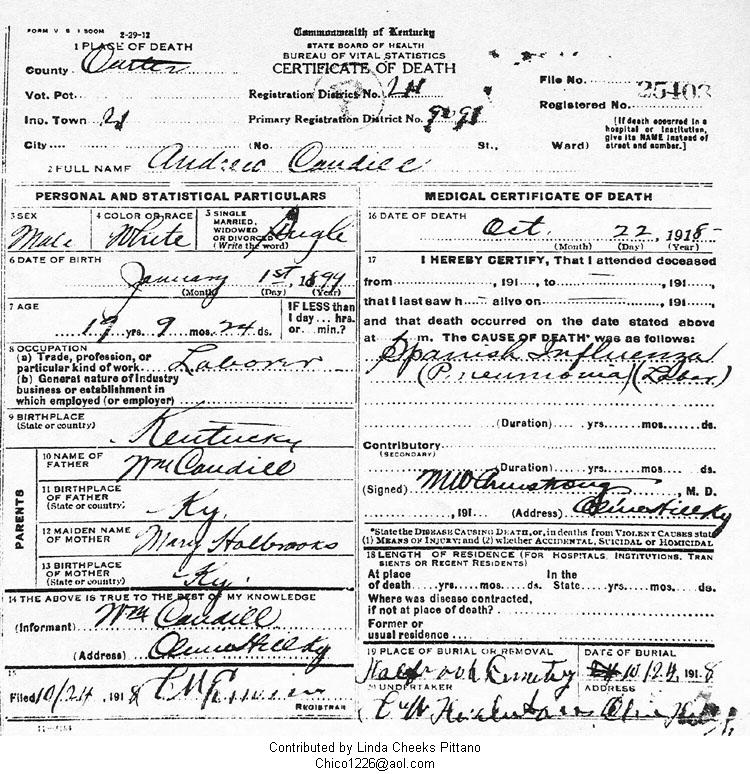 FORM V S 1 500M 2-29-12
Commonwealth of Kentucky
STATE BOARD OF HEALTH
BUREAU OF VITAL STATISTICS
CERTIFICATE OF DEATH
1 PLACE OF DEATH
County Carter
Vot. Pct
Ino. Town 21
City
Registration District No.
Primary Registration District No.
(No. St., Ward)
File No. 25403
Registered No.
[If death occurred in a
hospital or institution,
give its NAME instead of
street and number.]
2 FULL NAME Andrew Caudill
PERSONAL AND STATISTICAL PARTICULARS
3 SEX
Male
4 COLOR OR RACE
White
5 SINGLE
MARRIED,
WIDOWED
OR DIVORCED
(Write the word)
Single
6 DATE OF BIRTH
January 1st, 1899
(Month) (Day) (Year)
7 AGE
19 yrs. 9 mos. 24 ds.
IF LESS than
1 day ... hrs.
or ... min.?
8 OCCUPATION
(a) Trade, profession, or
particular kind of work Laborer
(b) General nature of industry
business or establishment in
which employed (or employer)
9 BIRTHPLACE
(State or country)
Kentucky
PARENTS
10 NAME OF
FATHER
Wm Caudill
11 BIRTHPLACE
OF FATHER
(State or country)
Ky.
12 MAIDEN NAME
OF MOTHER
Mary Holbrooks
13 BIRTHPLACE
OF MOTHER
(State or country)
Ky.
14 THE ABOVE IS TRUE TO THE BEST OF MY KNOWLEDGE
(Informant) Wm Caudill
(Address) Olive Hill Ky
15
Filed 10/24, 1918
REGISTRAR
MEDICAL CERTIFICATE OF DEATH
16 DATE OF DEATH
Oct. 22, 1918
(Month) (Day) (Year)
17 I HEREBY CERTIFY, That I attended deceased
from , 191 , to , 191 ,
that I last saw h alive on , 191 ,
and that death occurred on the date stated above
at m. The CAUSE OF DEATH* was as follows:
Spanish Influenza
(Pneumonia) (Lobar)
(Duration) yrs. mos. ds.
Contributory
(SECONDARY)
(Duration) yrs. mos. ds.
(Signed) M W Armstrong, M. D.
, 191 (Address) Olive Hill Ky
*State the DISEASE CAUSING DEATH, or, in deaths from VIOLENT CAUSES state
(1) MEANS OF INJURY; and (2) whether ACCIDENTAL, SUICIDAL or HOMICIDAL
18 LENGTH OF RESIDENCE (FOR HOSPITALS, INSTITUTIONS, TRAN
SIENTS OR RECENT RESIDENTS)
At place In the
of death yrs. mos. ds. State yrs. mos. ds.
Where was disease contracted,
if not at place of death?
Former or
usual residence
19 PLACE OF BURIAL OR REMOVAL
Cemetry
DATE OF BURIAL
10/24, 1918
UNDERTAKER
ADDRESS
Contributed by Linda Cheeks Pittano
Chico1226@aol.com